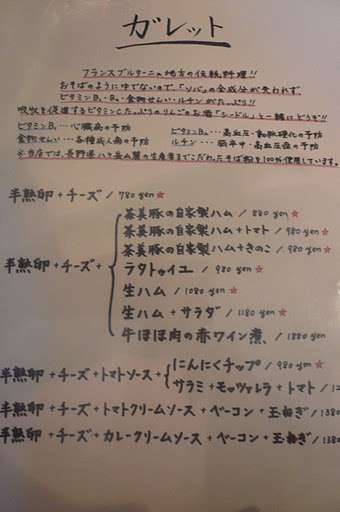 ガレット
フランスブルターニュ地方の伝統料理!!
おそばのようにゆでないので、「ソバ」の全成分が失われず、
ビタミンB1・B2・食物せんい・ルチンがたっぷり!!
吸収を促進するビタミンCたっぷりのりんごのお酒「シードル」と一緒にどうぞ!!
ビタミンB1…心臓病の予防 ビタミンB2…高血圧・動脈硬化の予防
食物せんい…各種成人病の予防 ルチン…脳卒中・高血圧症の予防
※当店では、長野県八ヶ岳山麓の生産者までこだわったそば粉を100%使用しています。
半熟卵+チーズ / 780 yen ☆
半熟卵+チーズ+
茶美豚の自家製ハム / 880 yen ☆
茶美豚の自家製ハム+トマト / 980 yen ☆
茶美豚の自家製ハム+きのこ / 980 yen ☆
ラタトゥイユ / 980 yen ☆
生ハム / 1080 yen ☆
生ハム + サラダ / 1180 yen ☆
牛ほほ肉の赤ワイン煮 / 1880 yen
半熟卵+チーズ+トマトソース+
にんにくチップ / 980 yen ☆
サラミ+モッツァレラ+トマト /
半熟卵+チーズ+トマトクリームソース+ベーコン+玉ねぎ / 1380
半熟卵+チーズ+カレークリームソース+ベーコン+玉ねぎ / 1380